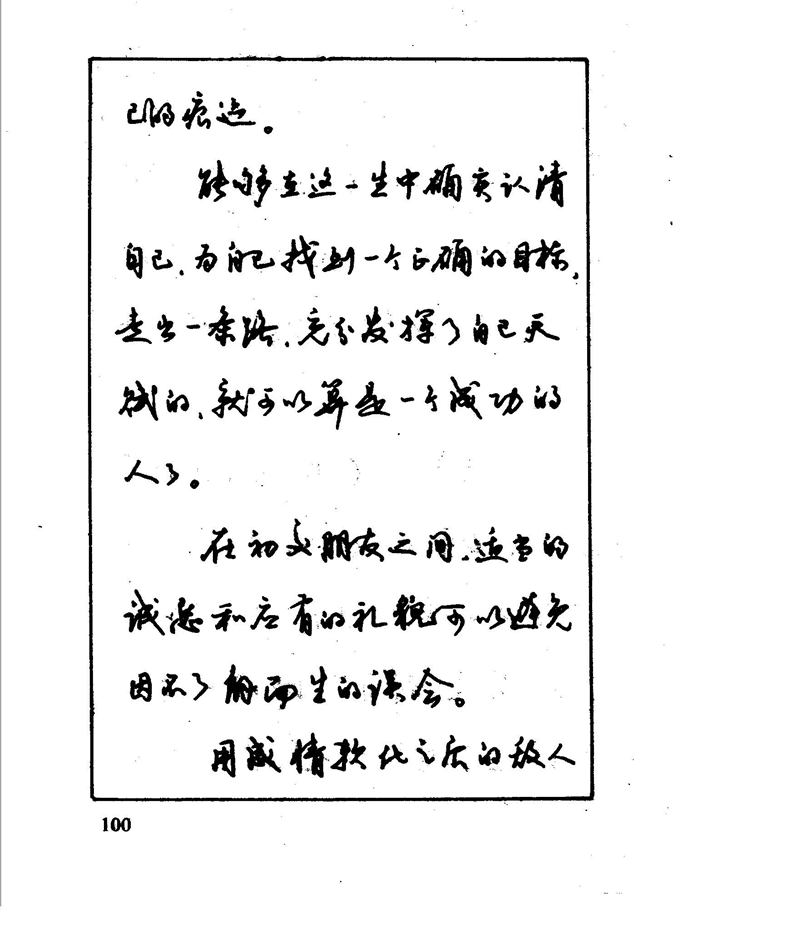 己的痕迹。
能够在这一生中确实认清
自己、为自己找到一个正确的目标，
走出一条路、充分发挥了自己天
赋的、就可以算是一个成功的
人了。
在初交朋友之间、适当的
诚恳和应有的礼貌可以避免
因不了解而生的误会。
用感情软化之后的敌人
100